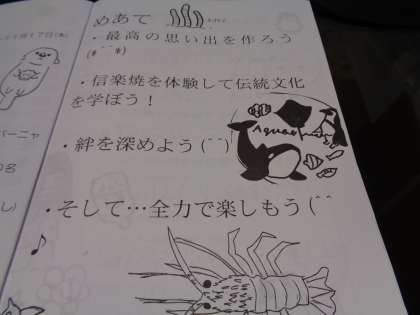 めあて
・最高の思い出を作ろう
・信楽焼を体験して伝統文化
を学ぼう！
・絆を深めよう(＾＾)
・そして…全力で楽しもう(＾
11月17日(木)
バーニャ
0名
し)